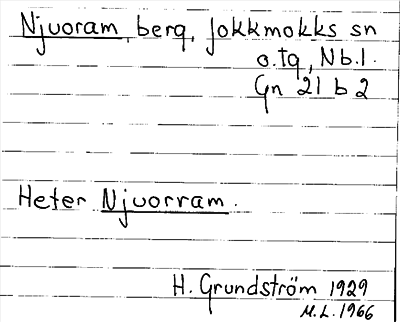 Njuoram, berg, Jokkmokks sn
o.tg, Nb.l.
Gn 21 b 2
Heter Njuorram.
H. Grundström 1929
M.L. 1966